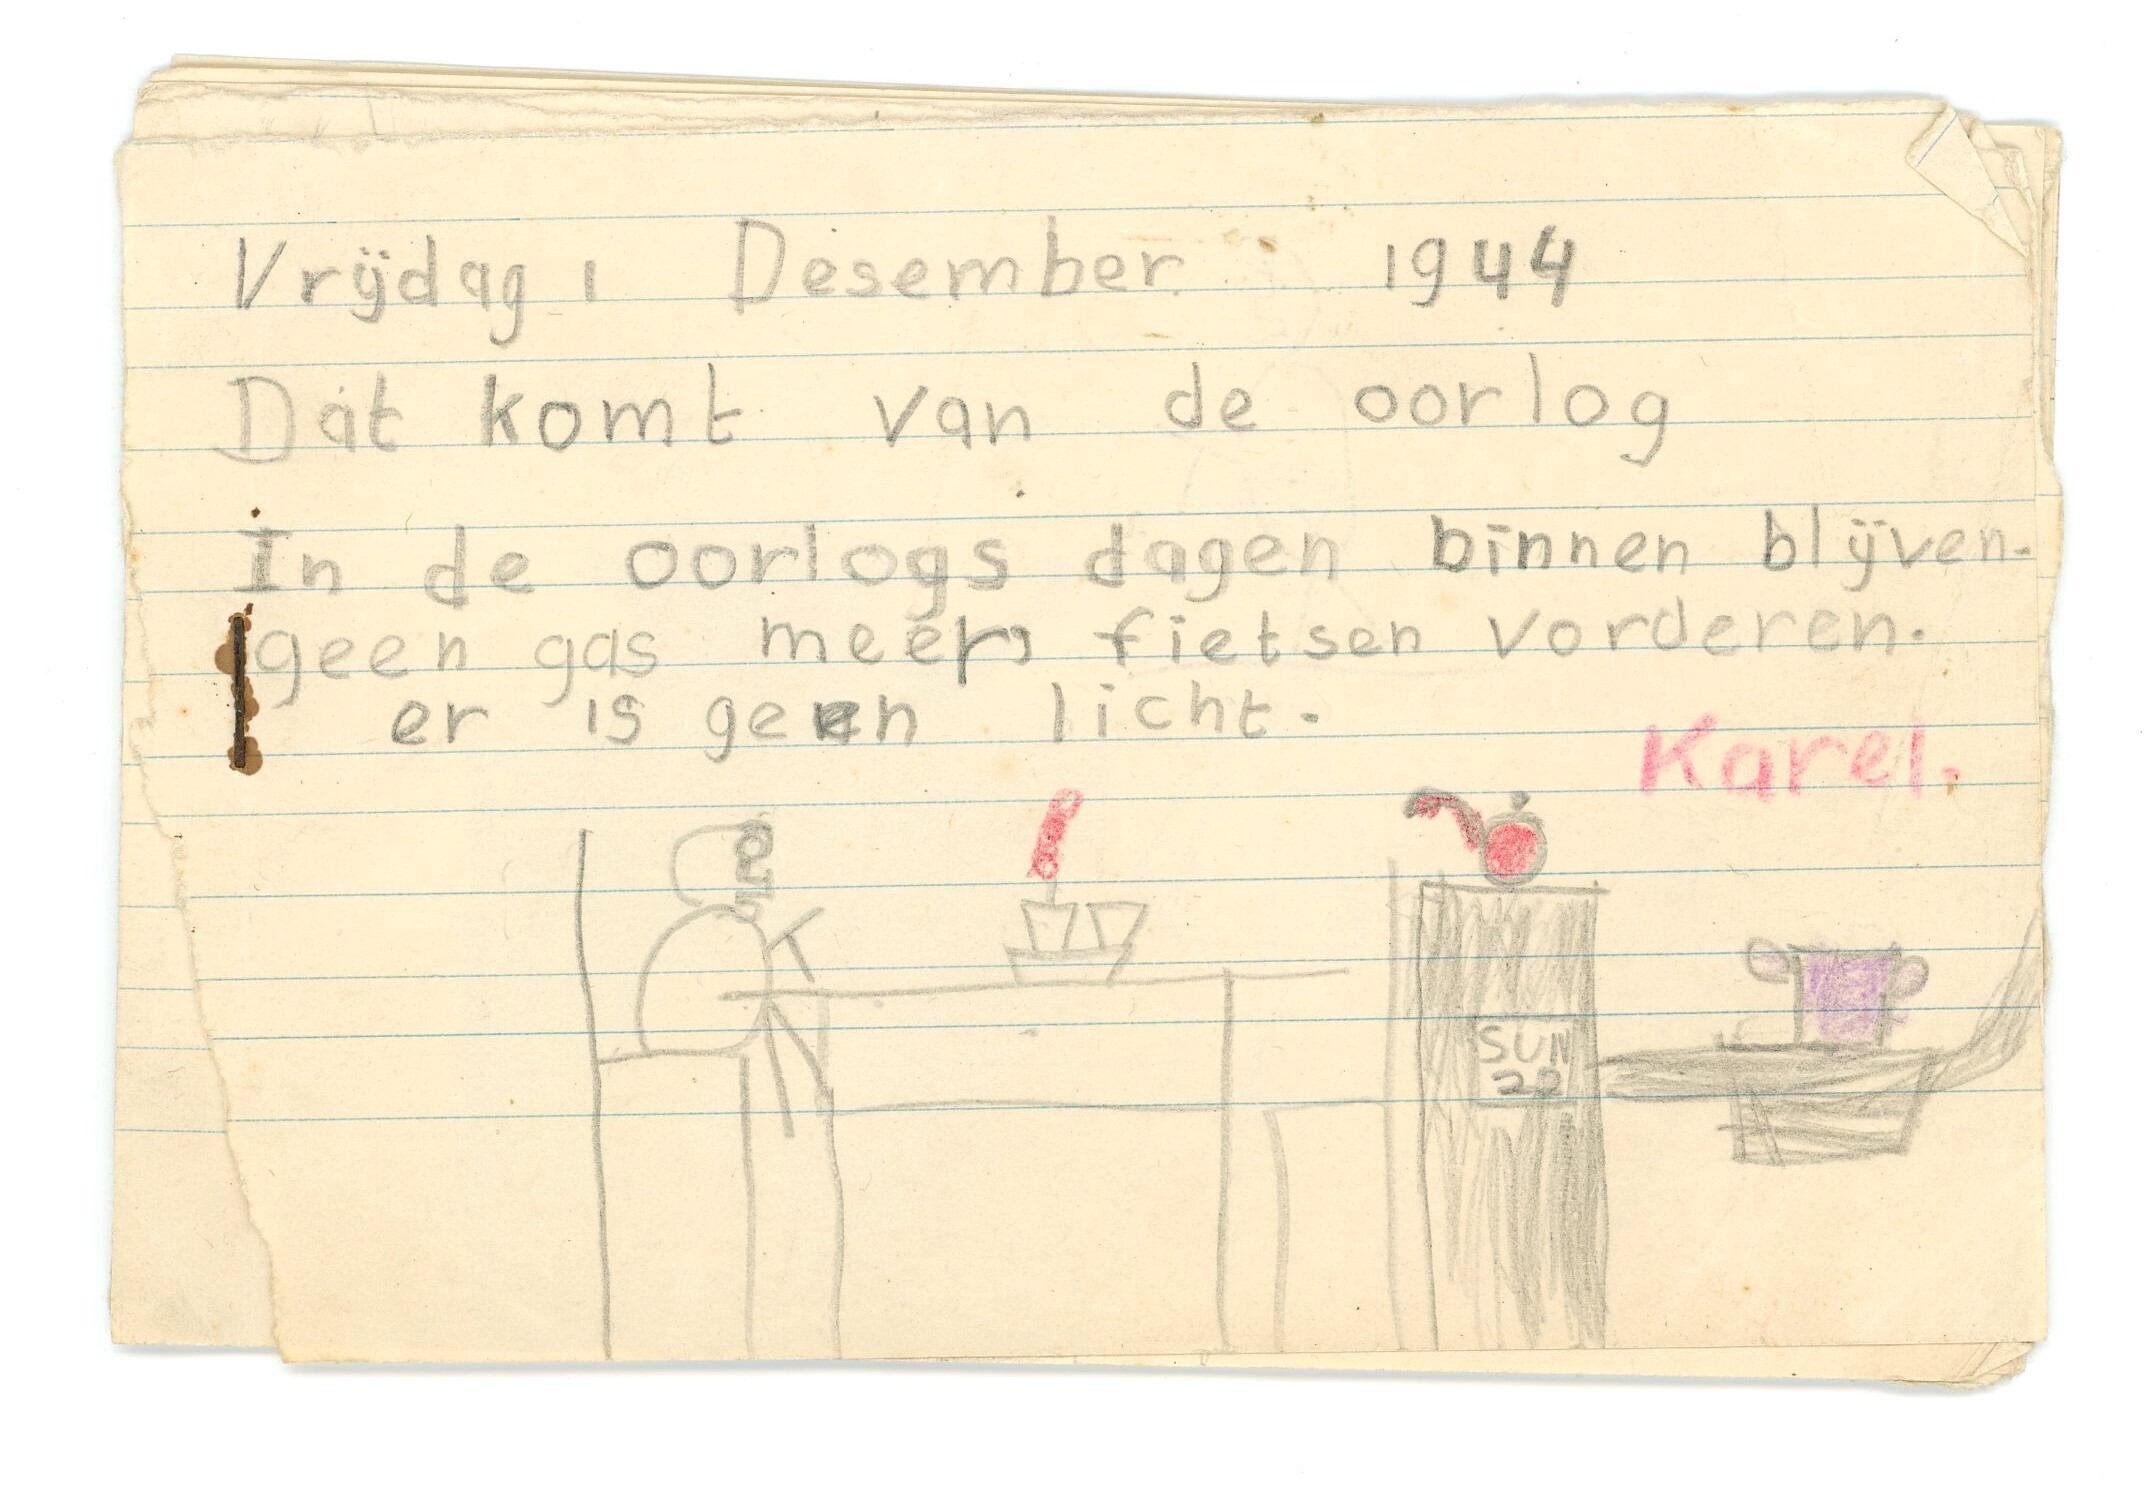 Vrijdag 1 Desember. 1944
Dat komt van de oorlog
In de oorlogs dagen binnen blijven.
geen gas meer, fietsen vorderen.
er is geen licht.
Karel.
SUN
22